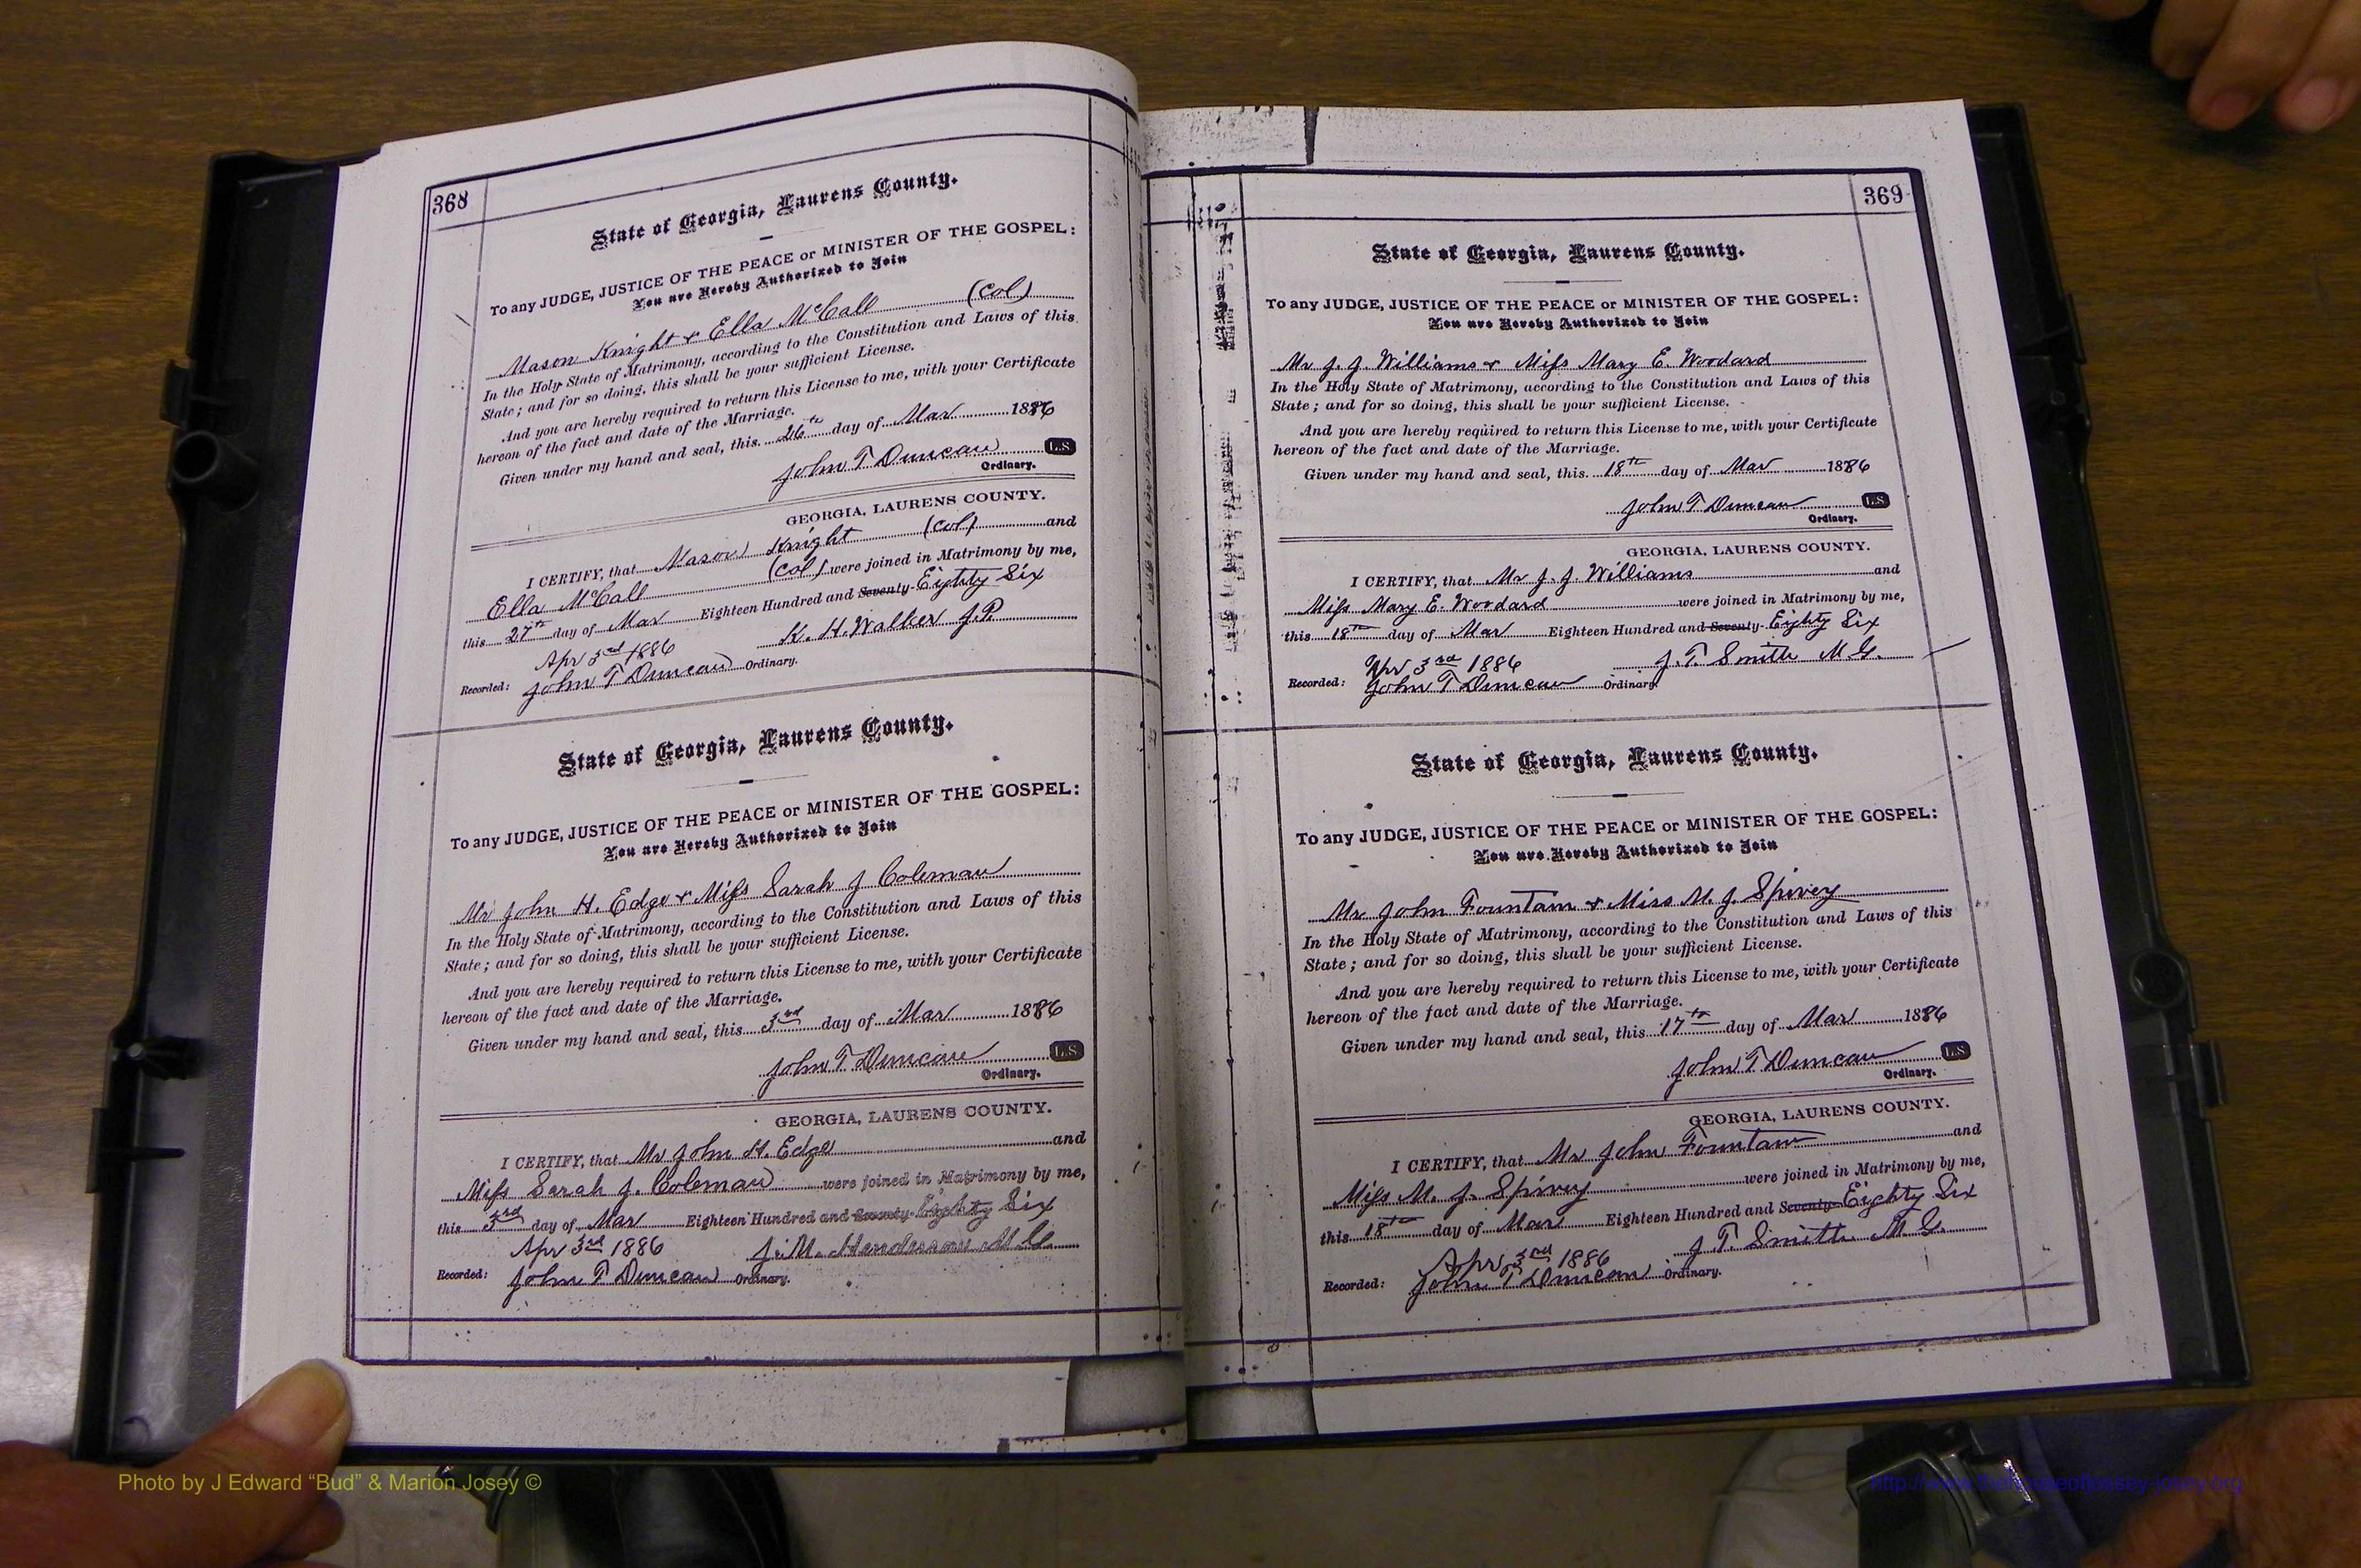 368
State of Georgia, Laurens County.
To any JUDGE, JUSTICE OF THE PEACE or MINISTER OF THE GOSPEL:
You are Hereby Authorized to Join
Mason Knight & Ella McCall (Col)
In the Holy State of Matrimony, according to the Constitution and Laws of this
State; and for so doing, this shall be your sufficient License.
And you are hereby required to return this License to me, with your Certificate
hereon of the fact and date of the Marriage.
Given under my hand and seal, this 26th day of Mar 1886
John T Duncan L.S
Ordinary.
GEORGIA, LAURENS COUNTY.
I CERTIFY, that Mason Knight (Col) and
Ella McCall (Col) were joined in Matrimony by me,
this 27th day of Mar Eighteen Hundred and Seventy- Eighty Six
Apr 3rd 1886 K. H. Walker J.P.
Recorded: John T Duncan Ordinary.
State of Georgia, Laurens County.
To any JUDGE, JUSTICE OF THE PEACE or MINISTER OF THE GOSPEL:
You are Hereby Authorized to Join
Mr John H. Edge & Miss Sarah J Coleman
In the Holy State of Matrimony, according to the Constitution and Laws of this
State; and for so doing, this shall be your sufficient License.
And you are hereby required to return this License to me, with your Certificate
hereon of the fact and date of the Marriage.
Given under my hand and seal, this 3rd day of Mar 1886
John T Duncan L.S
Ordinary.
GEORGIA, LAURENS COUNTY.
I CERTIFY, that Mr John H. Edge and
Miss Sarah J. Coleman were joined in Matrimony by me,
this 3rd day of Mar Eighteen Hundred and Seventy- Eighty Six
Apr 3rd 1886 J. M. Henderson M G.
Recorded: John T Duncan Ordinary.
369
State of Georgia, Laurens County.
To any JUDGE, JUSTICE OF THE PEACE or MINISTER OF THE GOSPEL:
You are Hereby Authorized to Join
Mr J. J. Williams & Miss Mary E. Woodard
In the Holy State of Matrimony, according to the Constitution and Laws of this
State; and for so doing, this shall be your sufficient License.
And you are hereby required to return this License to me, with your Certificate
hereon of the fact and date of the Marriage.
Given under my hand and seal, this 18th day of Mar 1886
John T Duncan L.S
Ordinary.
GEORGIA, LAURENS COUNTY.
I CERTIFY, that Mr J. J. Williams and
Miss Mary E. Woodard were joined in Matrimony by me,
this 18th day of Mar Eighteen Hundred and Seventy- Eighty Six
Apr 3rd 1886 J. T. Smith M G.
Recorded: John T Duncan Ordinary.
State of Georgia, Laurens County.
To any JUDGE, JUSTICE OF THE PEACE or MINISTER OF THE GOSPEL:
You are Hereby Authorized to Join
Mr John Fountain & Miss M. J. Spivey
In the Holy State of Matrimony, according to the Constitution and Laws of this
State; and for so doing, this shall be your sufficient License.
And you are hereby required to return this License to me, with your Certificate
hereon of the fact and date of the Marriage.
Given under my hand and seal, this 17th day of Mar 1886
John T Duncan L.S
Ordinary.
GEORGIA, LAURENS COUNTY.
I CERTIFY, that Mr John Fountain and
Miss M. J. Spivey were joined in Matrimony by me,
this 18th day of Mar Eighteen Hundred and Seventy- Eighty Six
Apr 3rd 1886 J T. Smith M. G.
Recorded: John T Duncan Ordinary.
Photo by J Edward “Bud” & Marion Josey ©